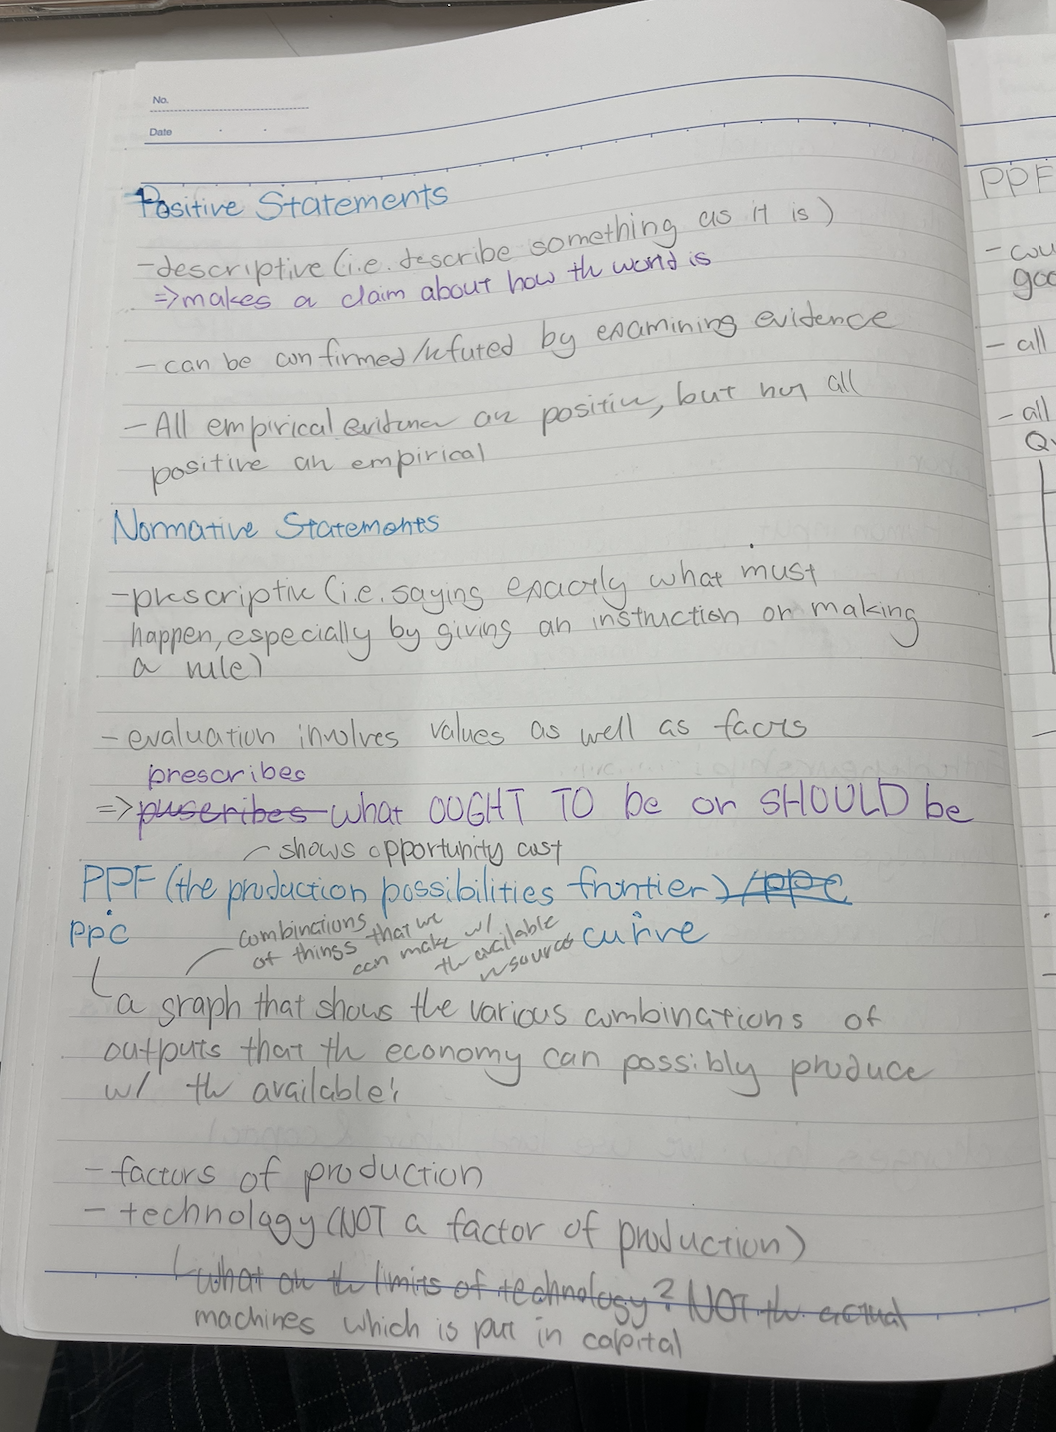 No.
Date
Positive Statements
-descriptive (i.e. describe something as it is)
=>makes a claim about how th world is
-can be confirmed/refuted by examining evidence
-All empirical evidence are positive, but not all
positive are empirical
Normative Statements
-prescriptive (i.e. saying exactly what must
happen, especially by giving an instruction or making
a rule)
-evaluation involves values as well as facts
prescribes
=> prescribes what OUGHT TO be or SHOULD be
shows opportunity cost
PPF (the production possibilities frontier) /PPC
PPC
curve
combinations
of things that we
can make w/
the available
resources
a graph that shows the various combinations of
outputs that the economy can possibly produce
w/ the available:
- factors of production
- technology (NOT a factor of production)
what are the limits of technology? NOT the actual
machines which is put in capital
PPF
- cou
goo
- all
- all